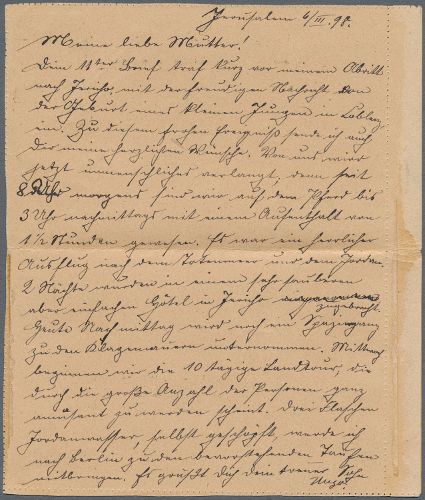 Jerusalem 6/III. 98.
Meine liebe Mutter!
Dein 11ter Brief traf kurz vor meinem Abritt
nach Jericho, mit der freudigen Nachricht von
der Geburt eines kleinen Jungen in Coblenz
ein. Zu diesem frohen Ereigniß sende ich auch
Dir meine herzlichen Wünsche. Von uns wird
jetzt unmenschliches verlangt, denn seit
8 Uhr morgens sind wir auf dem Pferd bis
3 Uhr nachmittags mit einem Aufenthalt von
1½ Stunden gewesen. Es war ein herrlicher
Ausflug nach dem Totenmeer und dem Jordan.
2 Nächte wurden in einem sehr sauberen
aber einfachen Hôtel in Jericho
zugebracht.
Heute Nachmittag wird noch ein Spaziergang
zu den Klagemauern unternommen. Mittwoch
beginnen wir die 10 tägige Landtour, die
durch die große Anzahl der Personen ganz
amüsant zu werden scheint. Drei Flaschen
Jordanwasser, selbst geschöpft, werde ich
nach Berlin zu den bevorstehenden Taufen
mitbringen. Es grüßt Dich dein treuer Sohn